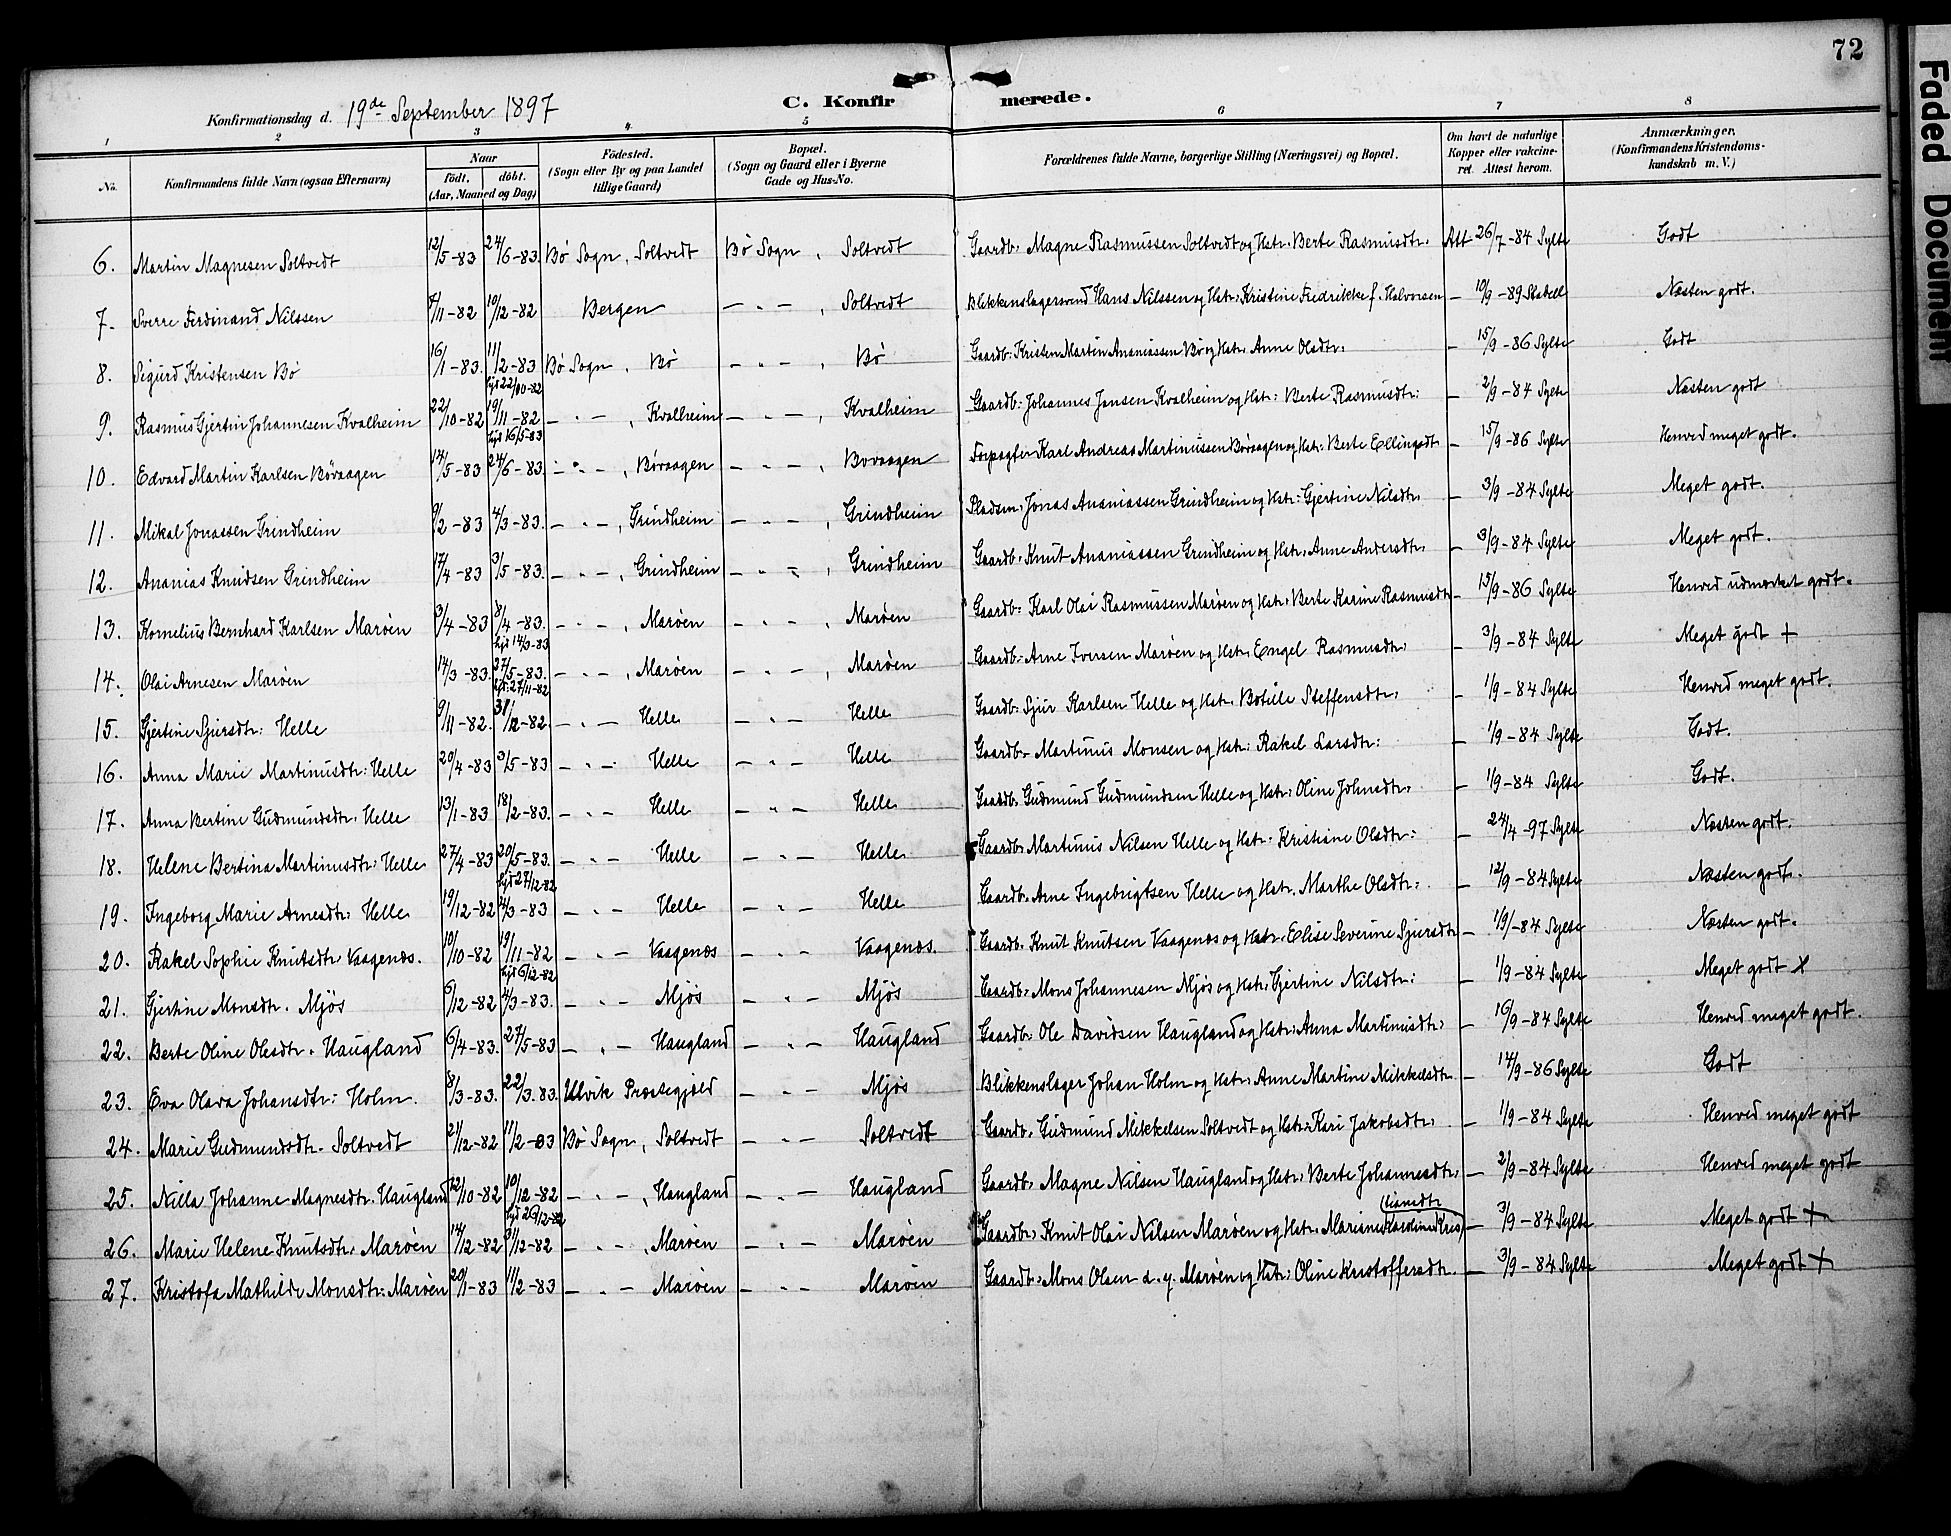 72
Konfirmationsdag d. 19de September 1897
C. Konfirmerede.
1 2 3 4 5 6 7 8
No. Konfirmandens fulde Navn (ogsaa Efternavn) Naar født, døbt. (Aar, Maaned og Dag) Fødested. (Sogn eller By og paa Landet tillige Gaard) Bopæl. (Sogn og Gaard eller i Byerne Gade og Hus-No. Forældrenes fulde Navne, borgerlige Stilling (Næringsvei) og Bopæl. Om havt de naturlige Kopper eller vakcineret. Attest herom. Anmærkninger. (Konfirmandens Kristendomskundskab m. V.)
6. Martin Magnesen Soltvedt 12/5-83 24/6-83. Bø Sogn, Soltvedt Bø Sogn, Soltvedt Gaardb. Magne Rasmussen Soltvedt og Hstr. Berte Rasmusdtr. Att 26/7-84 Sylte Godt
7. Sverre Ferdinand Nilssen 7/11-82 10/12-82 Bergen — " —, Soltvedt Blikkenslagersvend Hans Nilssen og Hstr. Kristine Fredrikke f. Halvorsen — 10/9-89 Stabell Næsten godt.
8. Sigurd Kristensen Bø 16/1-83. 11/2-83 Bø Sogn, Bø — " —, Bø Gaardb. Kristen Martin Ananiassen Bø og Hstr. Anne Olsdtr: — 15/9-86 Sylte Godt
9. Rasmus Gjertin Johannesen Kvalheim 22/10-82 hjd 22/10-82 19/11-82 — " —, Kvalheim — " —, Kvalheim Gaardb: Johannes Jensen Kvalheim og Hstr: Berte Rasmusdtr: — 2/9-84 Sylte Næsten godt
10. Edvard Martin Karlsen Børøagen 14/5-83 hjd 16/5-83 24/6-83. — " —, Børøagen — " —, Bovaagen Forpagter Karl Andreas Martinussen Børøagen og Hstr: Berte Ellingsdt. — 15/9-86 Sylte Henved meget godt.
11. Mikal Jonassen Grindheim 9/2-83 4/3-83. — " —, Grindheim — " —, Grindheim Pladsm. Jonas Ananiassen Grindheim og Hstr: Gjertine Nilsdtr. — 3/9-84 Sylte Meget godt.
12. Ananias Knudsen Grindheim 17/4-83 3/5-83. — " —, Grindheim — " —, Grindheim Gaardb. Knut Ananiassen Grindheim og Hstr. Anne Andersdtr. — 3/9-84 Sylte Meget godt.
13. Kornelius Bernhard Karlsen Marøen 3/4-83 8/4-83. — " —, Marøen — " —, Marøen Gaardb: Karl Olai Rasmussen Marøen og Hstr. Berte Karine Rasmusdtr — 15/9-86 Sylte Henved udmærket godt.
14. Olai Arnesen Marøen 14/3-83. hjd 14/3-83 27/5-83. — " —, Marøen — " —, Marøen Gaardb. Arne Iversen Marøen og Hstr. Engel Rasmusdtr. — 3/9-84 Sylte Meget godt +
15. Gjertine Sjursdtr: Helle 9/11-82. hjd. 27/11-82 31/12-82. — " — Helle — " — Helle Gaardb: Sjur Karlsen Helle og Hstr. Botille Steffensdtr. — 1/9-84 Sylte Henved meget godt.
16. Anna Marie Martinusdtr: Helle 20/4-83 3/5-83 — " — Helle — " — Helle Gaardb. Martinus Monsen og Hstr: Rakel Larsdtr: — 1/9-84 Sylte Godt.
17. Anna Bertine Gudmundsdtr. Helle 13/1-83 18/2-83. — " — Helle — " — Helle Gaardb. Gudmund Gudmundsen Helle og Hstr. Oline Johnsdtr. — 1/9-84 Sylte Godt.
18. Helene Bertina Martinusdtr: Helle 27/4-83 20/5-83. — " — Helle — " — Helle Gaardb. Martinus Nilsen Helle og Hstr. Kristiane Olsdtr: — 24/4-97 Sylte Næsten godt.
19. Ingeborg Marie Arnesdtr: Helle 19/12-82 hjd 27/12-82 4/3-83 — " — Helle — " — Helle Gaardb. Arne Ingebrigtsen Helle og Hstr. Marthe Olsdtr: — 12/9-84 Sylte Næsten godt.
20. Rakel Sophie Knutsdtr. Vaagenæs. 10/10-82 19/11-82 — " — Vaagenæs — " — Vaagenæs. Gaardb. Knut Knutsen Vaagenæs og Hstr. Elise Severine Sjursdtr — 1/9-84 Sylte Næsten godt.
21. Gjertine Monsdtr. Mjøs 6/12-82 hjd 6/12-82 4/3-83. — " — Mjøs — " — Mjøs Gaardb. Mons Johannesen Mjøs og Hstr. Gjertine Nilsdtr: — 1/9-84 Sylte Meget godt +
22. Berte Oline Olsdtr. Haugland 6/4-83. 27/5-83 — " — Haugland — " — Haugland Gaardb. Ole Davidsen Haugland og Hstr: Anna Martinusdtr: — 16/9-84 Sylte Henved meget godt.
23. Eva Olava Johansdtr: Holm. 8/3-83. 22/3.83. Ulvik Præstegjæld — " — Mjøs Blikkenslager Johan Holm og Hstr. Anne Martine Mikkelsdtr — 14/9-86 Sylte Godt
24. Marie Gudmundsdtr. Soltvedt 21/12-82 11/2-83 Bø Sogn, Soltvedt — " — Soltvedt Gaardb. Gudmund Mikkelsen Soltvedt og Hstr. Kari Jakobsdtr. — 1/9-84 Sylte Henved meget godt
25. Nilla Johanne Magnesdtr. Haugland 12/10-82 10/12-82 — " —, Haugland — " — Haugland Gaardb. Magne Nilsen Haugland og Hstr. Berte Johannesdtr. — 2/9-84 Sylte Henved meget godt
26. Marie Helene Knutsdtr. Marøen 14/12-82 hjd 26/12-82 31/12-82 — " —, Marøen — " — Marøen Gaardb. Knut Olai Nilsen Marøen og Hstr. Mariane Karoline Kristiansdtr — 3/9-84 Sylte Meget godt +
27. Kristofa Mathilde Monsdtr: Marøen 20/1-83 11/2-83 — " — Marøen — " — Marøen Gaardb. Mons Olsen d. y. Marøen og Hstr: Oline Kristoffersdtr. — 3/9-84 Sylte Meget godt +
Faded Document